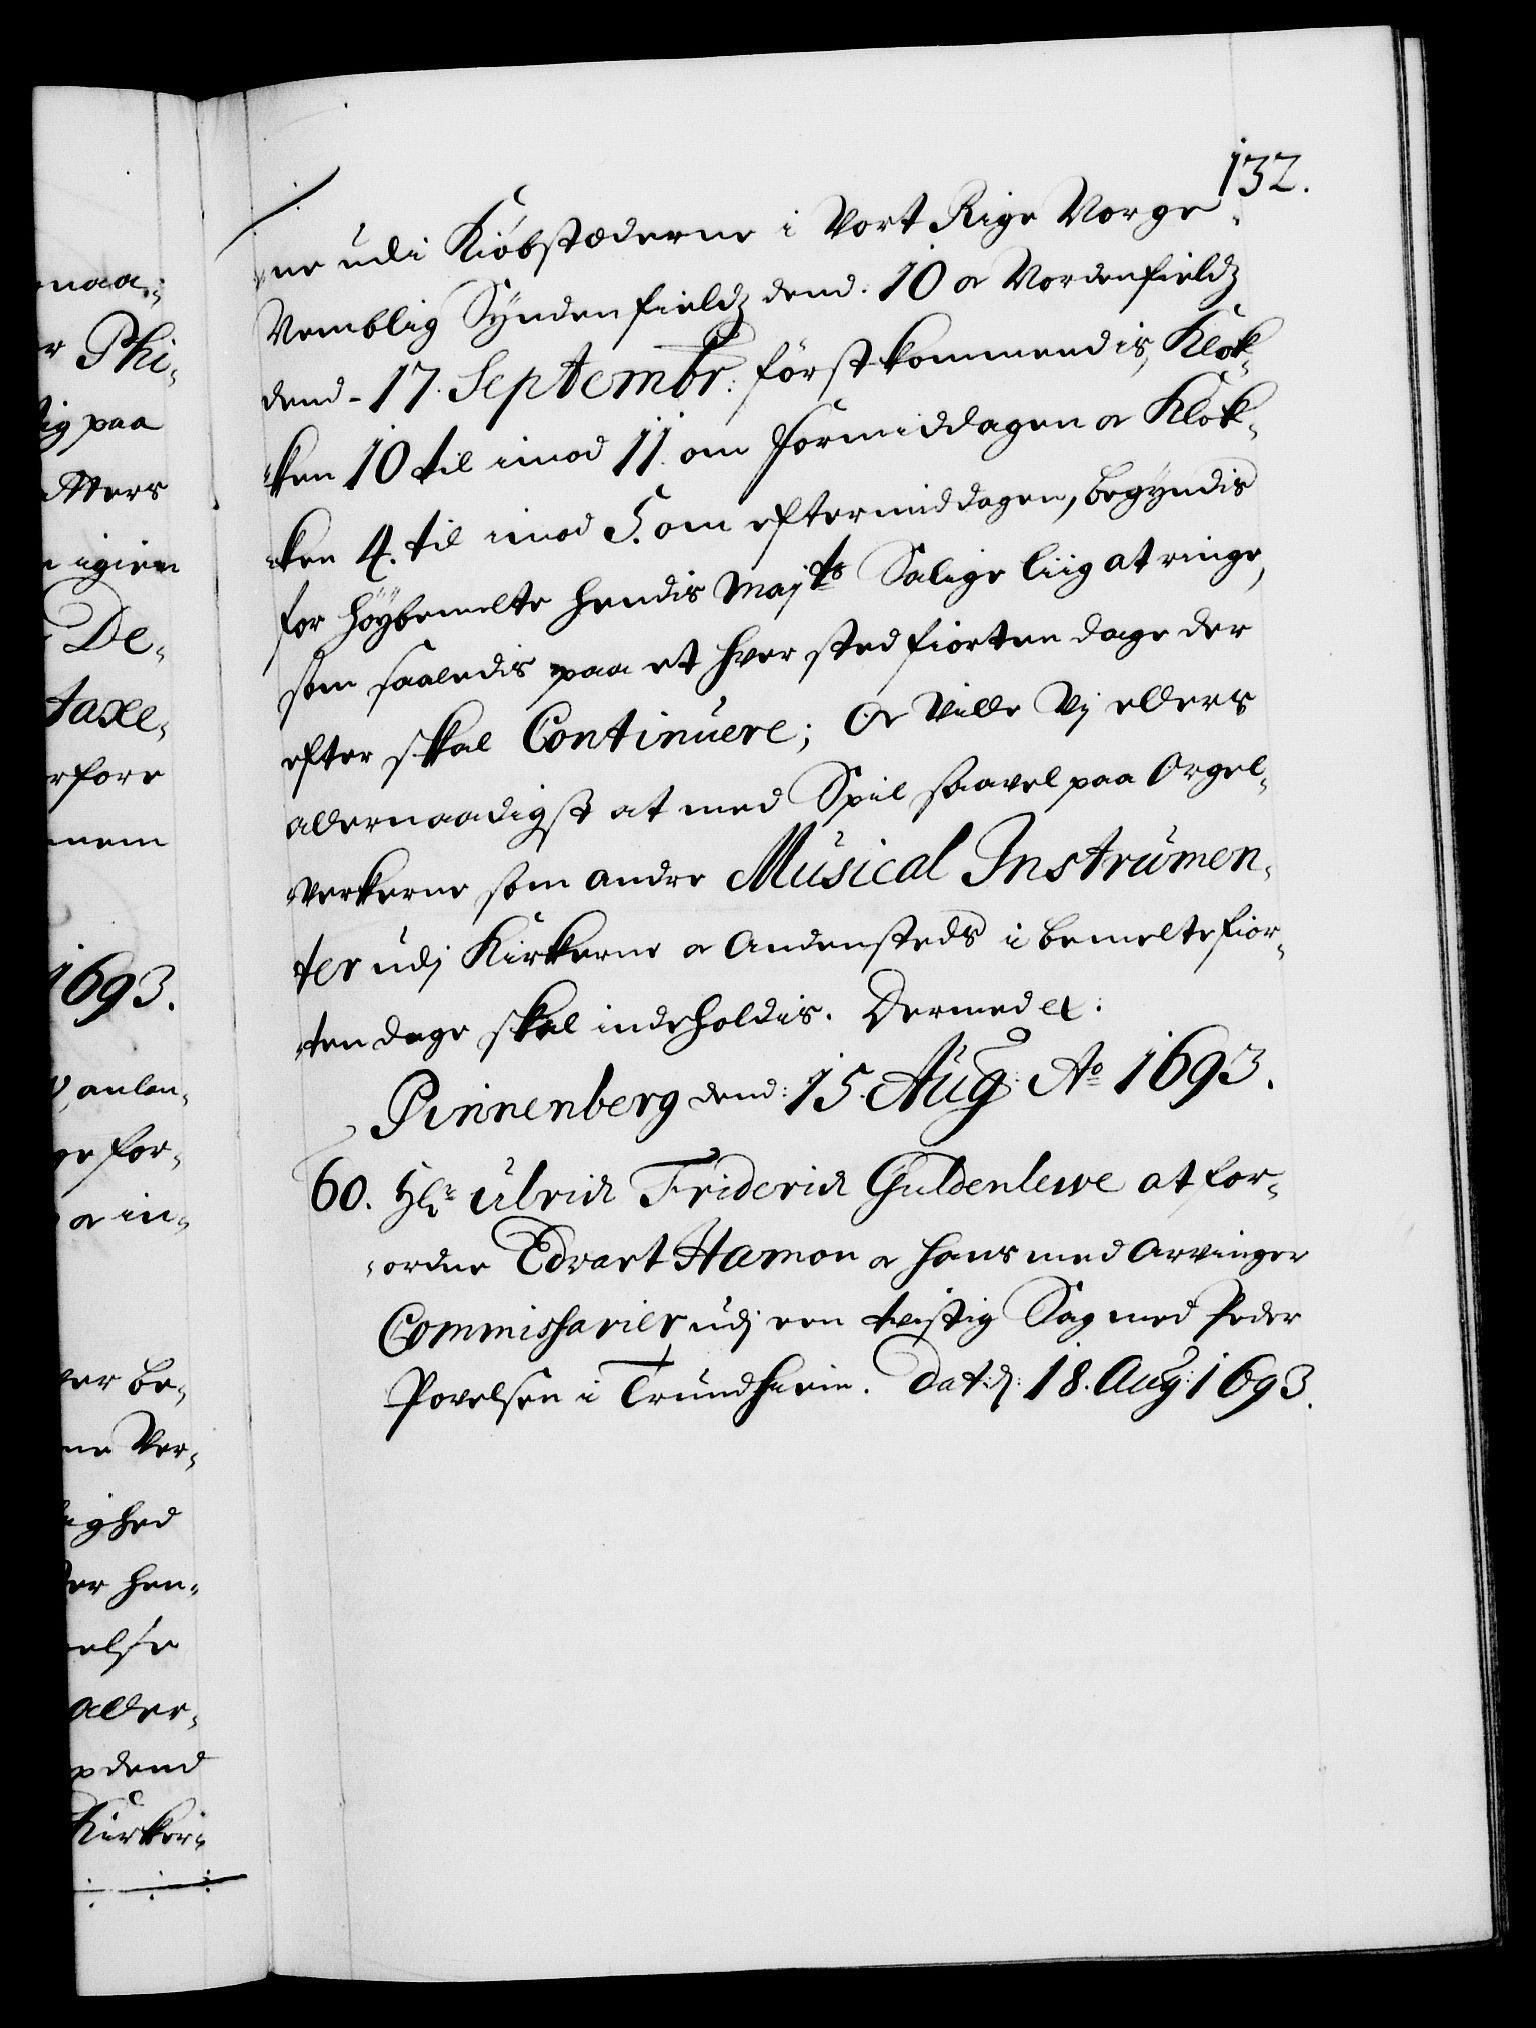 132.
ne udi Kiöbstæderne i Vort Rige Norge
Nemblig Syndenfieldz dend: 10 oc Nordenfieldz
dend 17. Septembr: först kommendis, Klok-
ken 10 til imod 11. om formiddagen oc Klok-
ken 4. til imod 5. om eftermiddagen, begyndis
for höybemelte hendis Maj:ts Salige liig at ringe,
som saaledis paa et hver sted fiorten dage der
efter skal Continuere; Oc Ville Vj ellers
allernaadigst at med Spil saavel paa Orgel-
verkerne som andre Musical Instrumen-
ter udj Kirkerne oc Andensteds i bemelte fior-
ten dage skal indeholdis. Dermed etc:
Pinnenberg dend: 15. Aug: Ao 1693.
60. Hr. Ulrich Friderich Guldenlewe at for-
ordne Edvart Hamon oc hans med Arvinger
Commissarier udj een tvistig Sag med Peder
Povelsen i Trundhiem. Dat: d: 18. Aug: 1693.
naa-
r Phi-
ig paa
tters
igien
De-
taxe-
rfore
nem
1693.
anlan-
ge for-
oc in-
ver be-
ne Ver-
ighed
der hen-
else
Aller-
dend
Kirker-